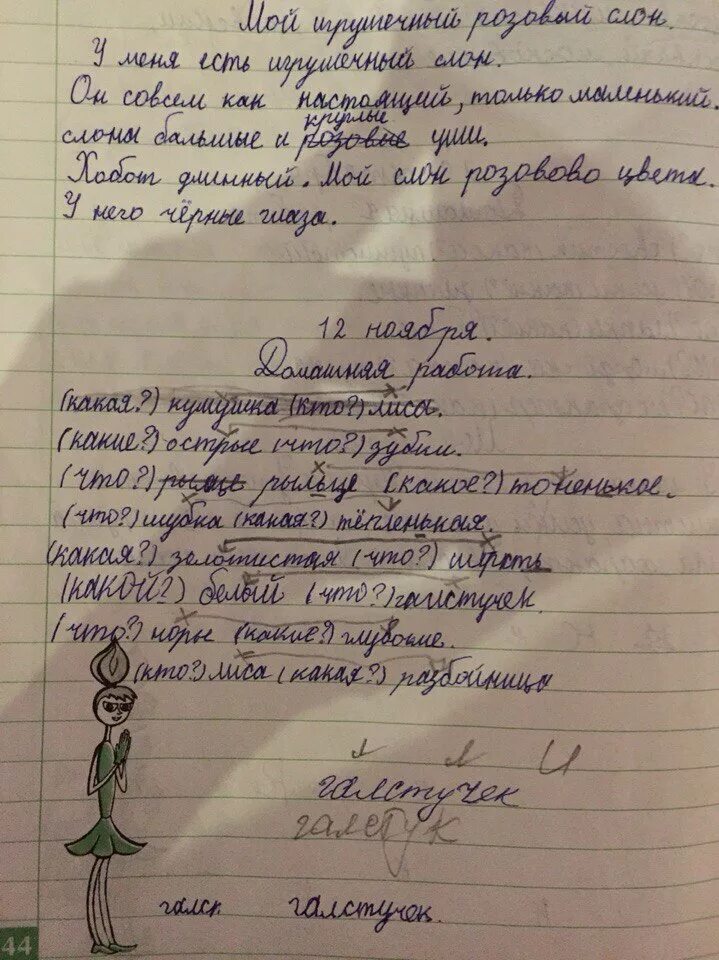 Мой игрушечный розовый слон.
У меня есть игрушечный слон.
Он совсем как настоящий, только маленький.
круглые
слона бальшые и розовые уши.
Хобот длинный. Мой слон розовово цвета.
У него чёрные глаза.
12 ноября.
Домашняя работа.
(какая?) кумушка (кто?) лиса.
(какие?) острые (что?) зубки.
(что?) рыльце (какое?) тоненькое.
(что?) шубка (какая?) тёпленькая.
(какая?) золотистая (что?) шерсть
(КАКОЙ?) белый (что?) галстучек
(что?) норы (какие?) глубокие.
(кто?) лиса (какая?) разбойница
л л И
галстучек
галстук
галск галстучек.
44